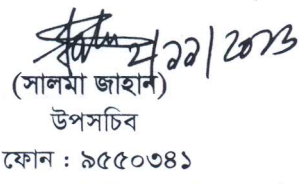 ২/১১/২০১৩
(সালমা জাহান)
উপসচিব
ফোন : ৯৫৫০৩৪১